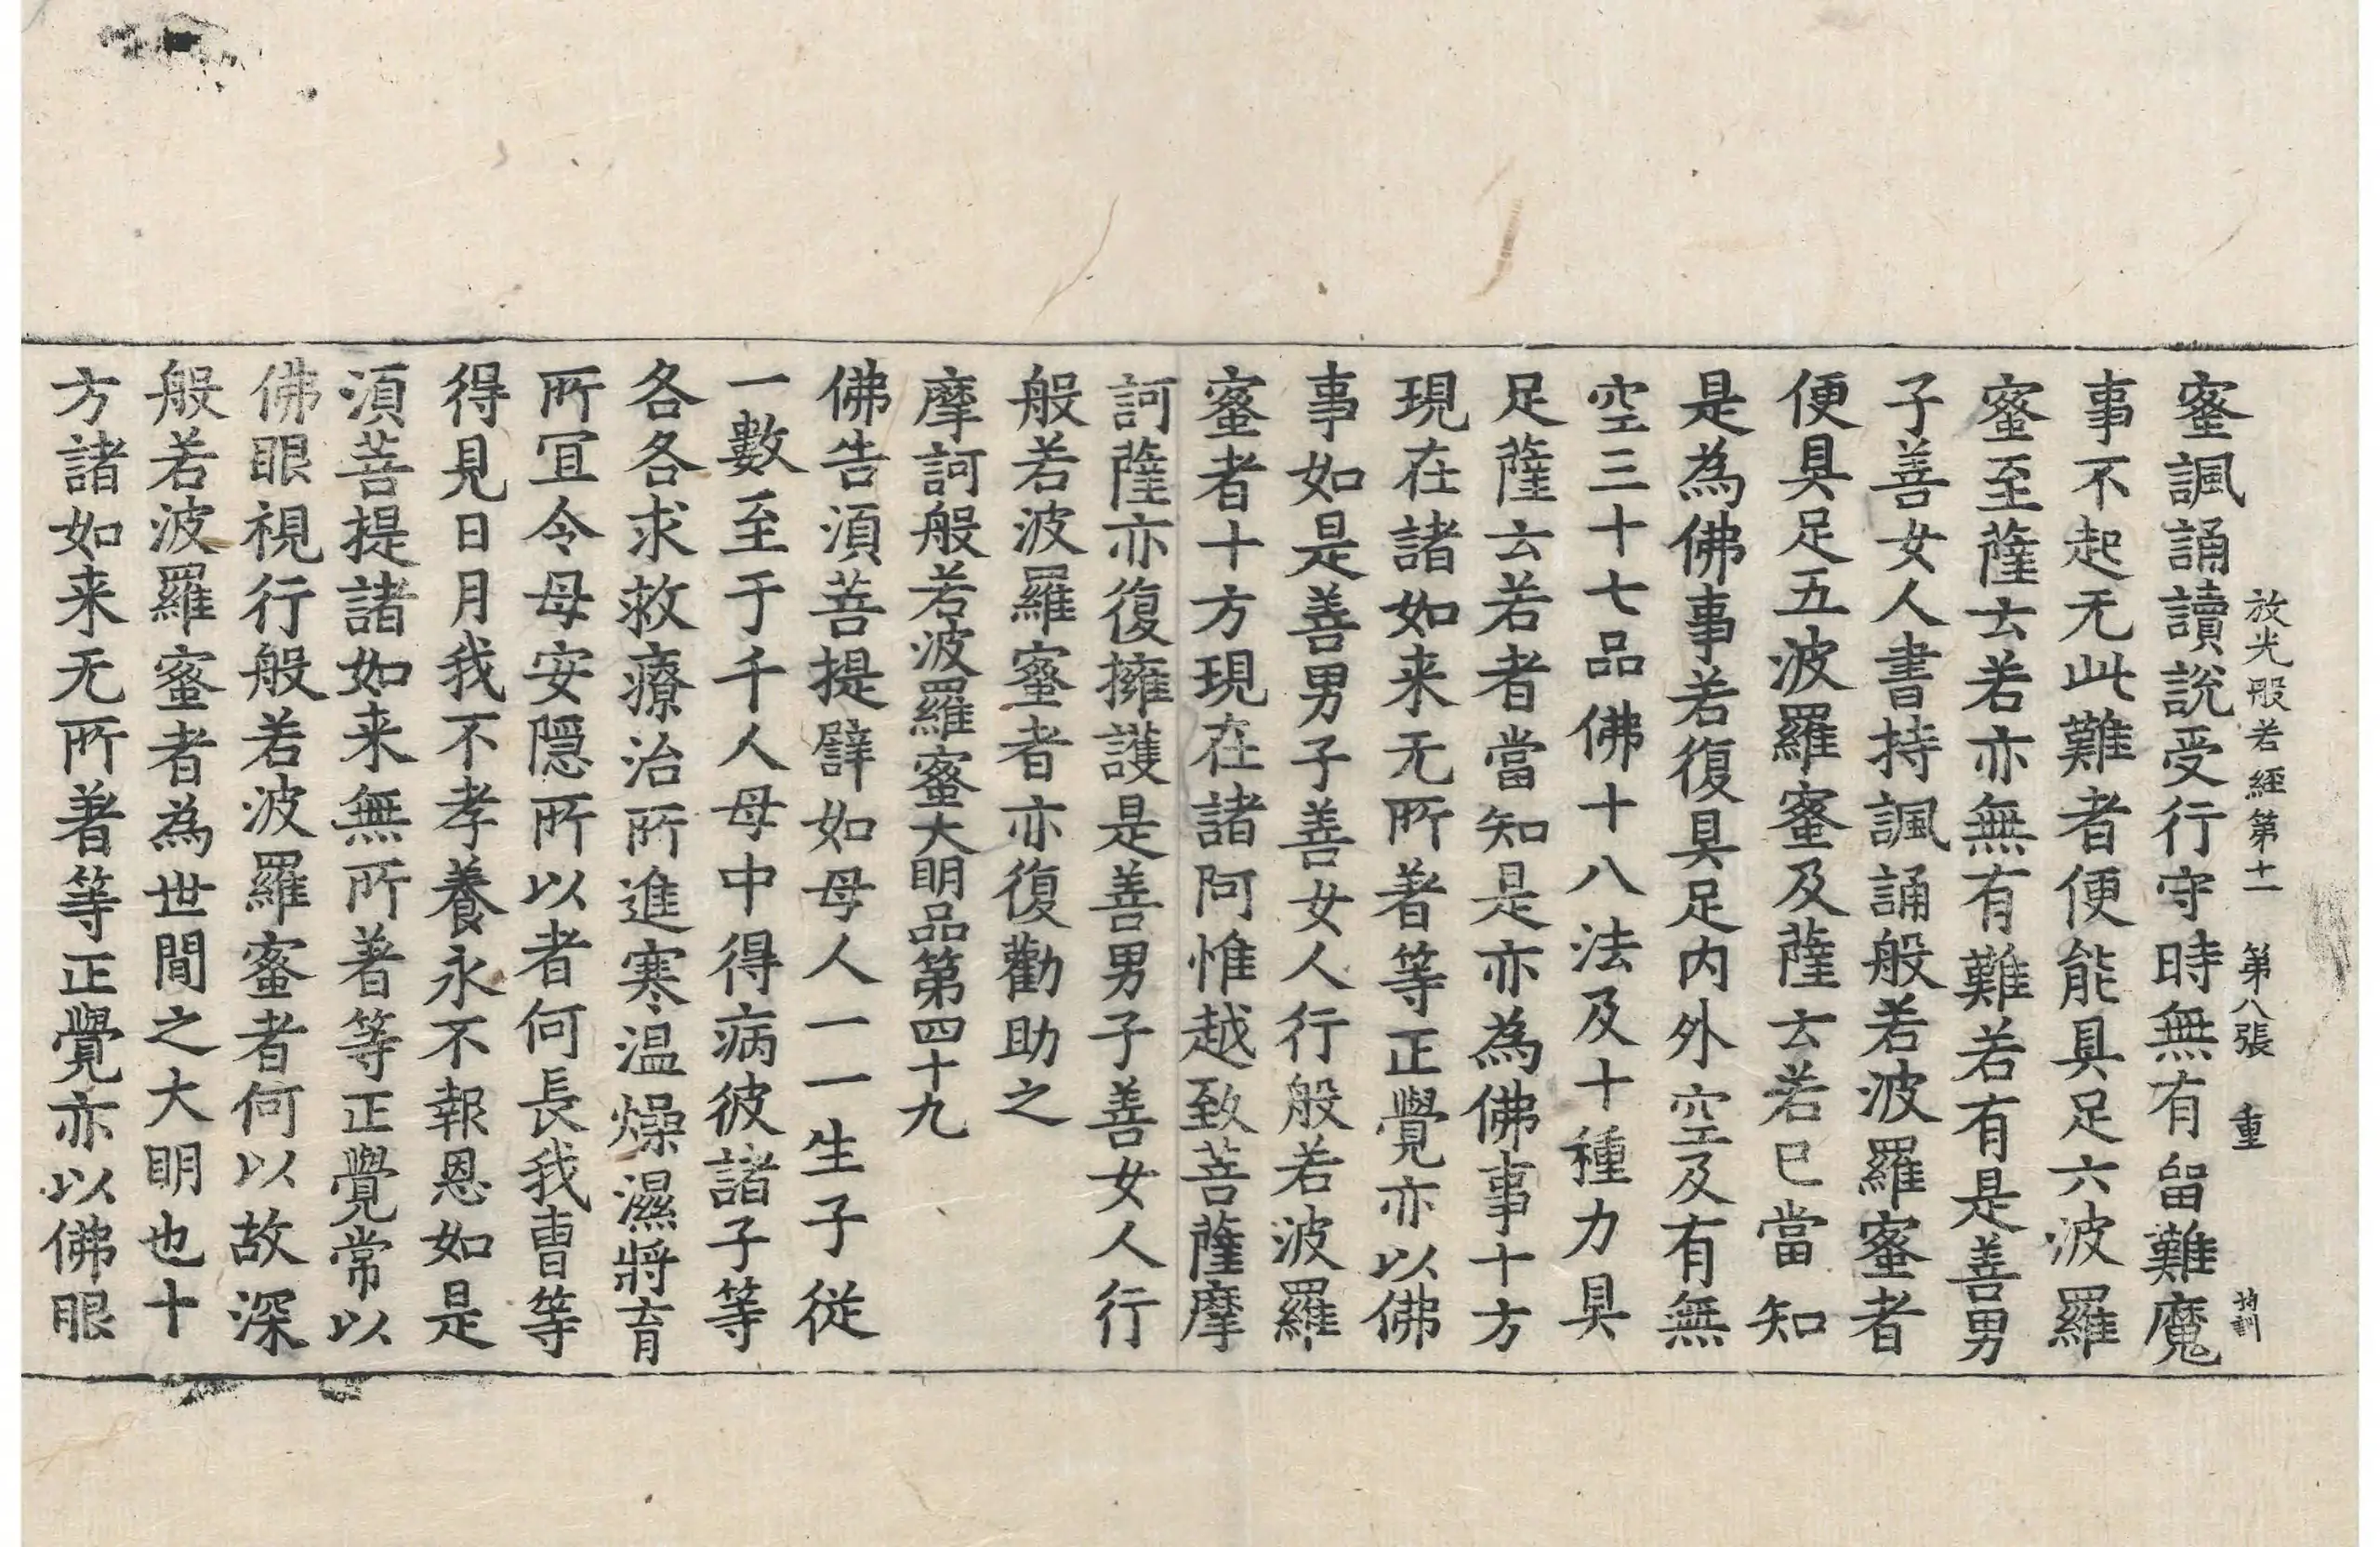 放光般若經第十一 第八張 重
蜜諷誦讀說受行守時無有留難魔
事不起无此難者便能具足六波羅
蜜至薩云若亦無有難若有是善男
子善女人書持諷誦般若波羅蜜者
便具足五波羅蜜及薩云若已當知
是為佛事若復具足内外空及有無
空三十七品佛十八法及十種力具
足薩云若者當知是亦為佛事十方
現在諸如来无所著等正覺亦以佛
事如是善男子善女人行般若波羅
蜜者十方現在諸阿惟越致菩薩摩
訶薩亦復擁護是善男子善女人行
般若波羅蜜者亦復勸助之
摩訶般若波羅蜜大明品第四十九
佛告須菩提譬如母人一一生子從
一數至于千人母中得病彼諸子等
各各求救療治所進寒温燥濕將育
所冝令母安隱所以者何長我曺等
得見日月我不孝養永不報恩如是
須菩提諸如来無所著等正覺常以
佛眼視行般若波羅蜜者何以故深
般若波羅蜜者為世間之大明也十
方諸如来无所著等正覺亦以佛眼